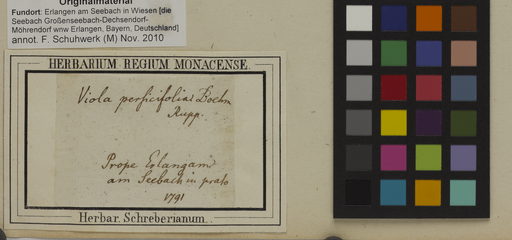 Originalmaterial
Fundort: Erlangen am Seebach in Wiesen [die
Seebach Großenseebach-Dechsendorf-
Möhrendorf wnw Erlangen, Bayern, Deutschland]
annot. F. Schuhwerk (M) Nov. 2010
HERBARIUM REGIUM MONACENSE.
Viola persicifolia Boehm
Rupp.
Prope Erlangam
am Seebach in prato
1791
Herbar. Schreberianum.